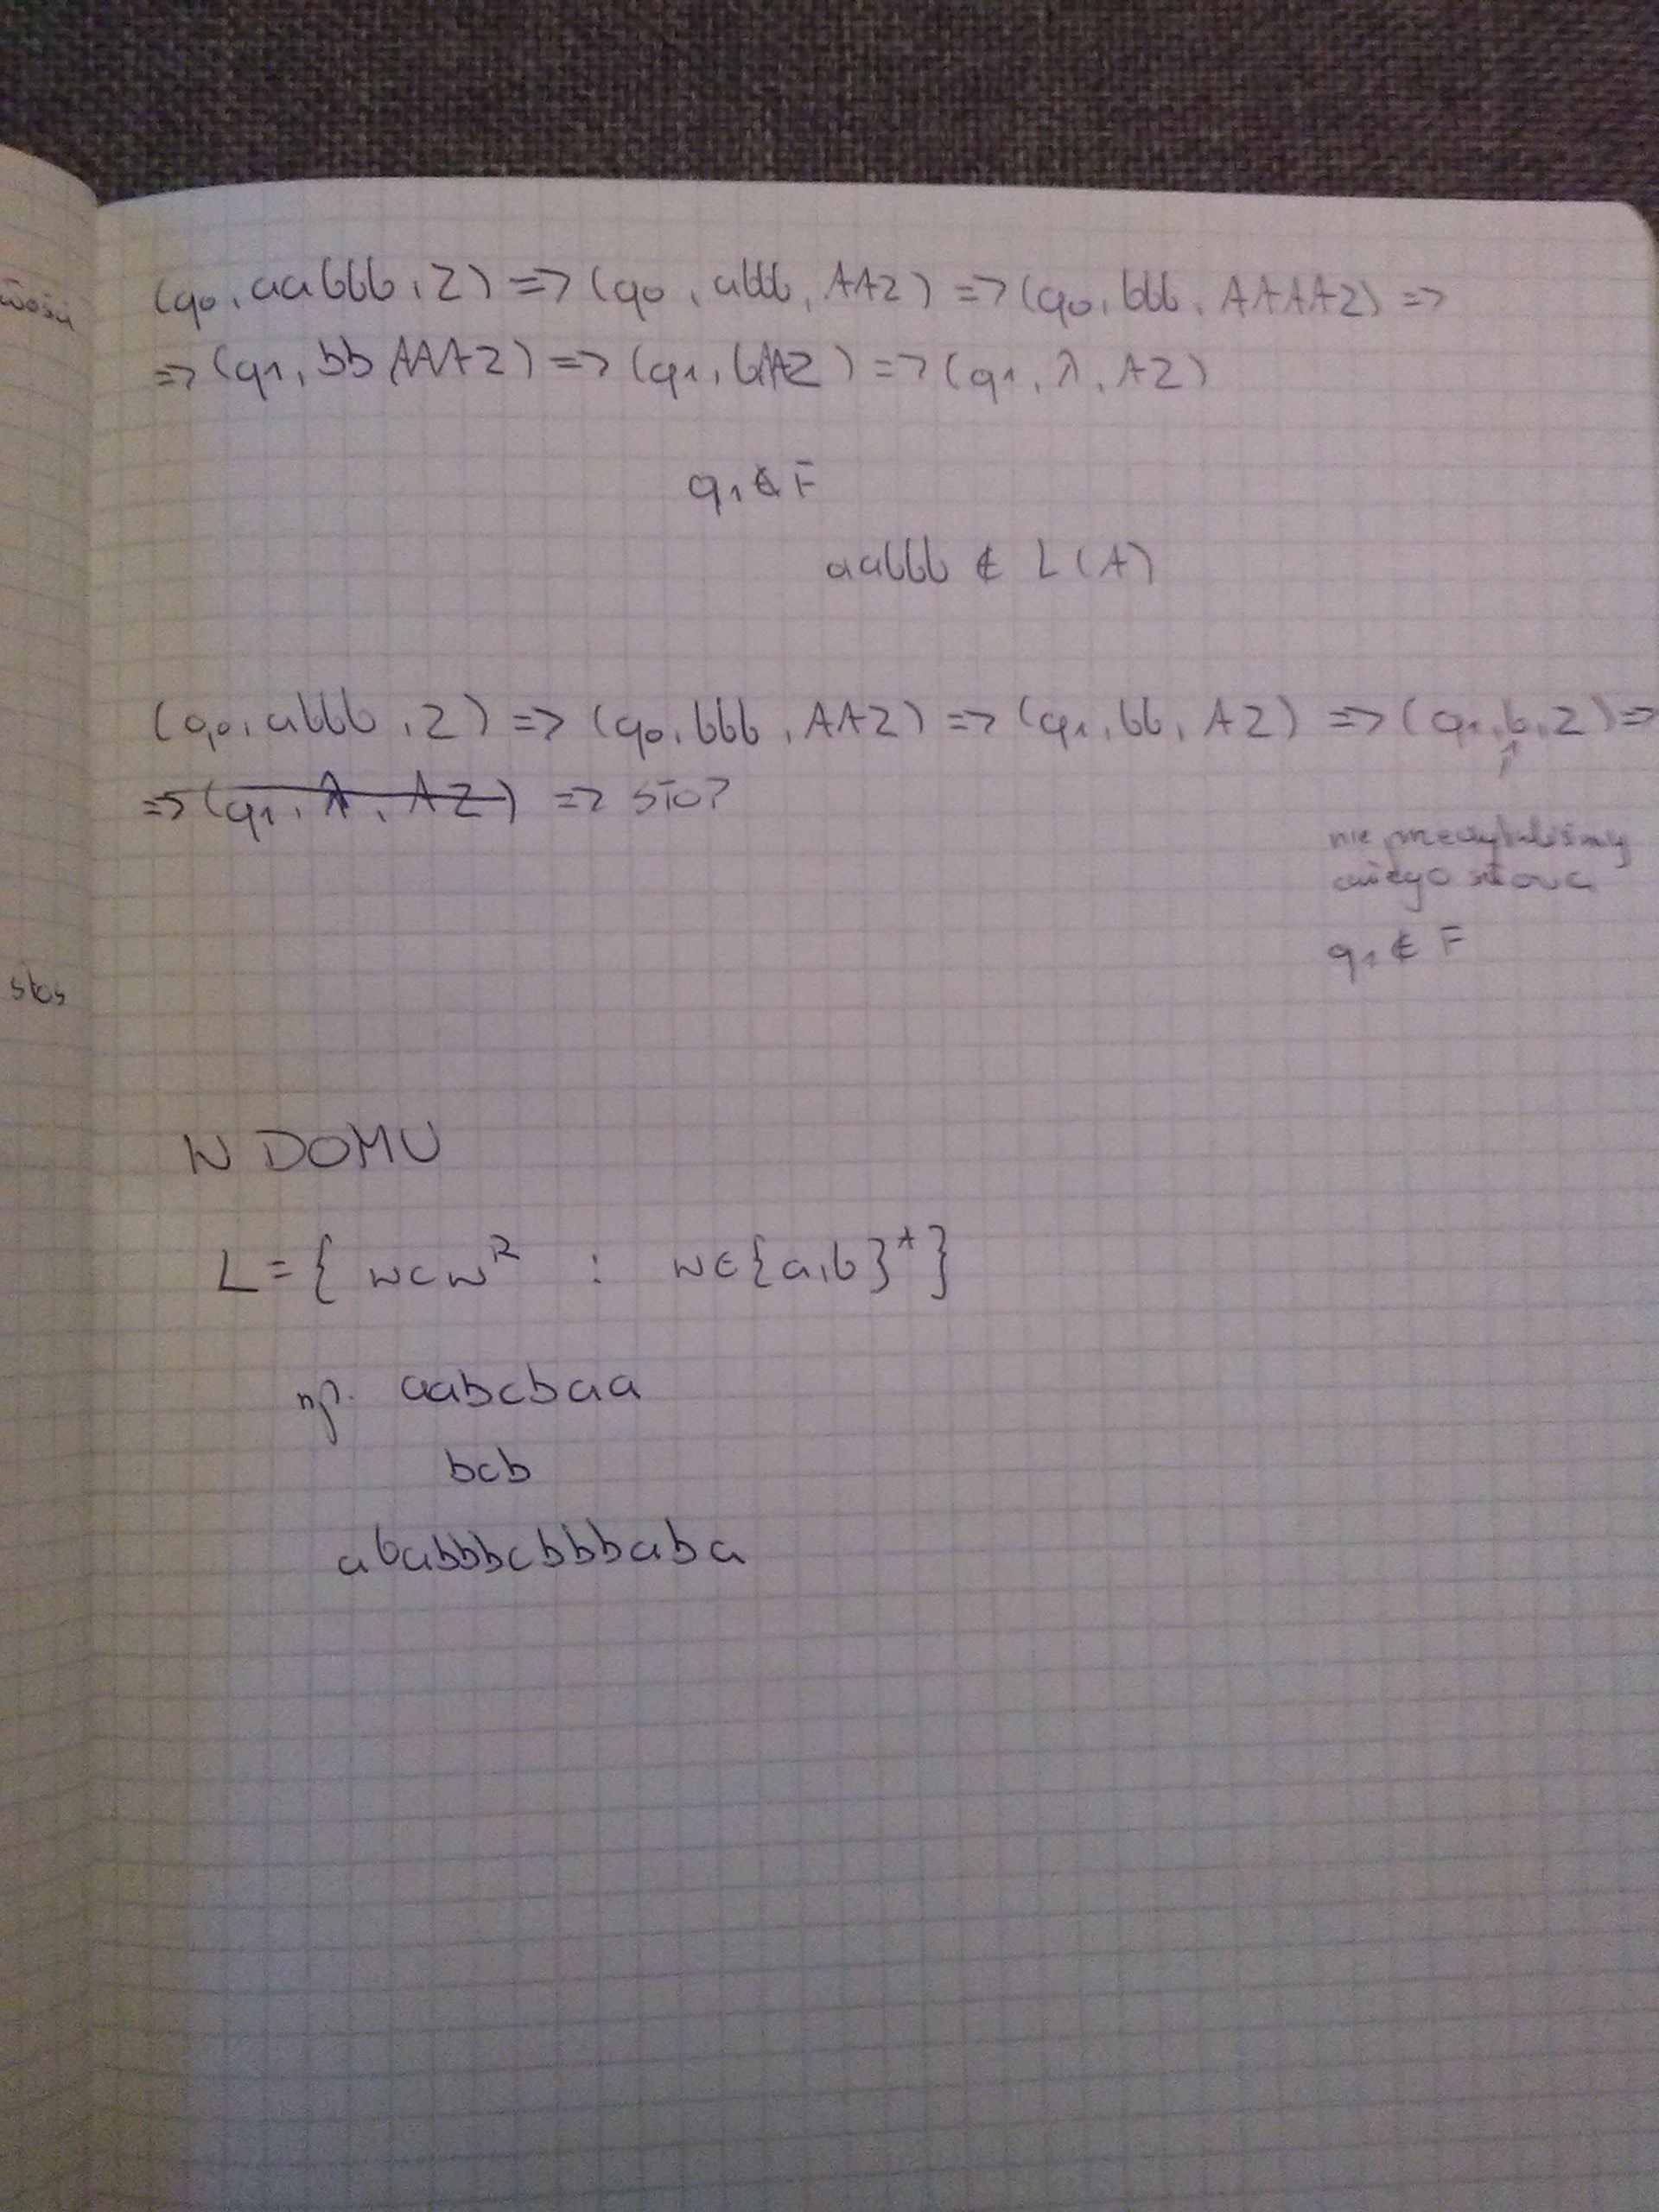 (q0, aabbb, Z) => (q0, abbb, AAZ) => (q0, bbb, AAAAZ) =>
=> (q1, bb, AAAZ) => (q1, b, AAZ) => (q1, λ, AZ)
q1 ∉ F
aabbb ∉ L(A)
(q0, abbb, Z) => (q0, bbb, AAZ) => (q1, bb, AZ) => (q1, b, Z) =>
=> (q1, λ, AZ) => STOP
nie przeczytaliśmy
całego słowa
q1 ∉ F
stos
W DOMU
L = { wcw^R : w∈{a,b}^+ }
np. aabcbaa
bcb
ababbbcbbbaba